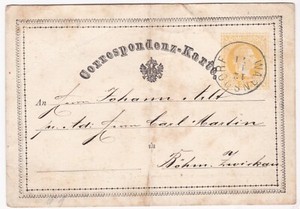 Correspondenz-Karte
An Herrn Johann
p. Adr. Herrn Carl Martin
in
Böhm. Zwickau